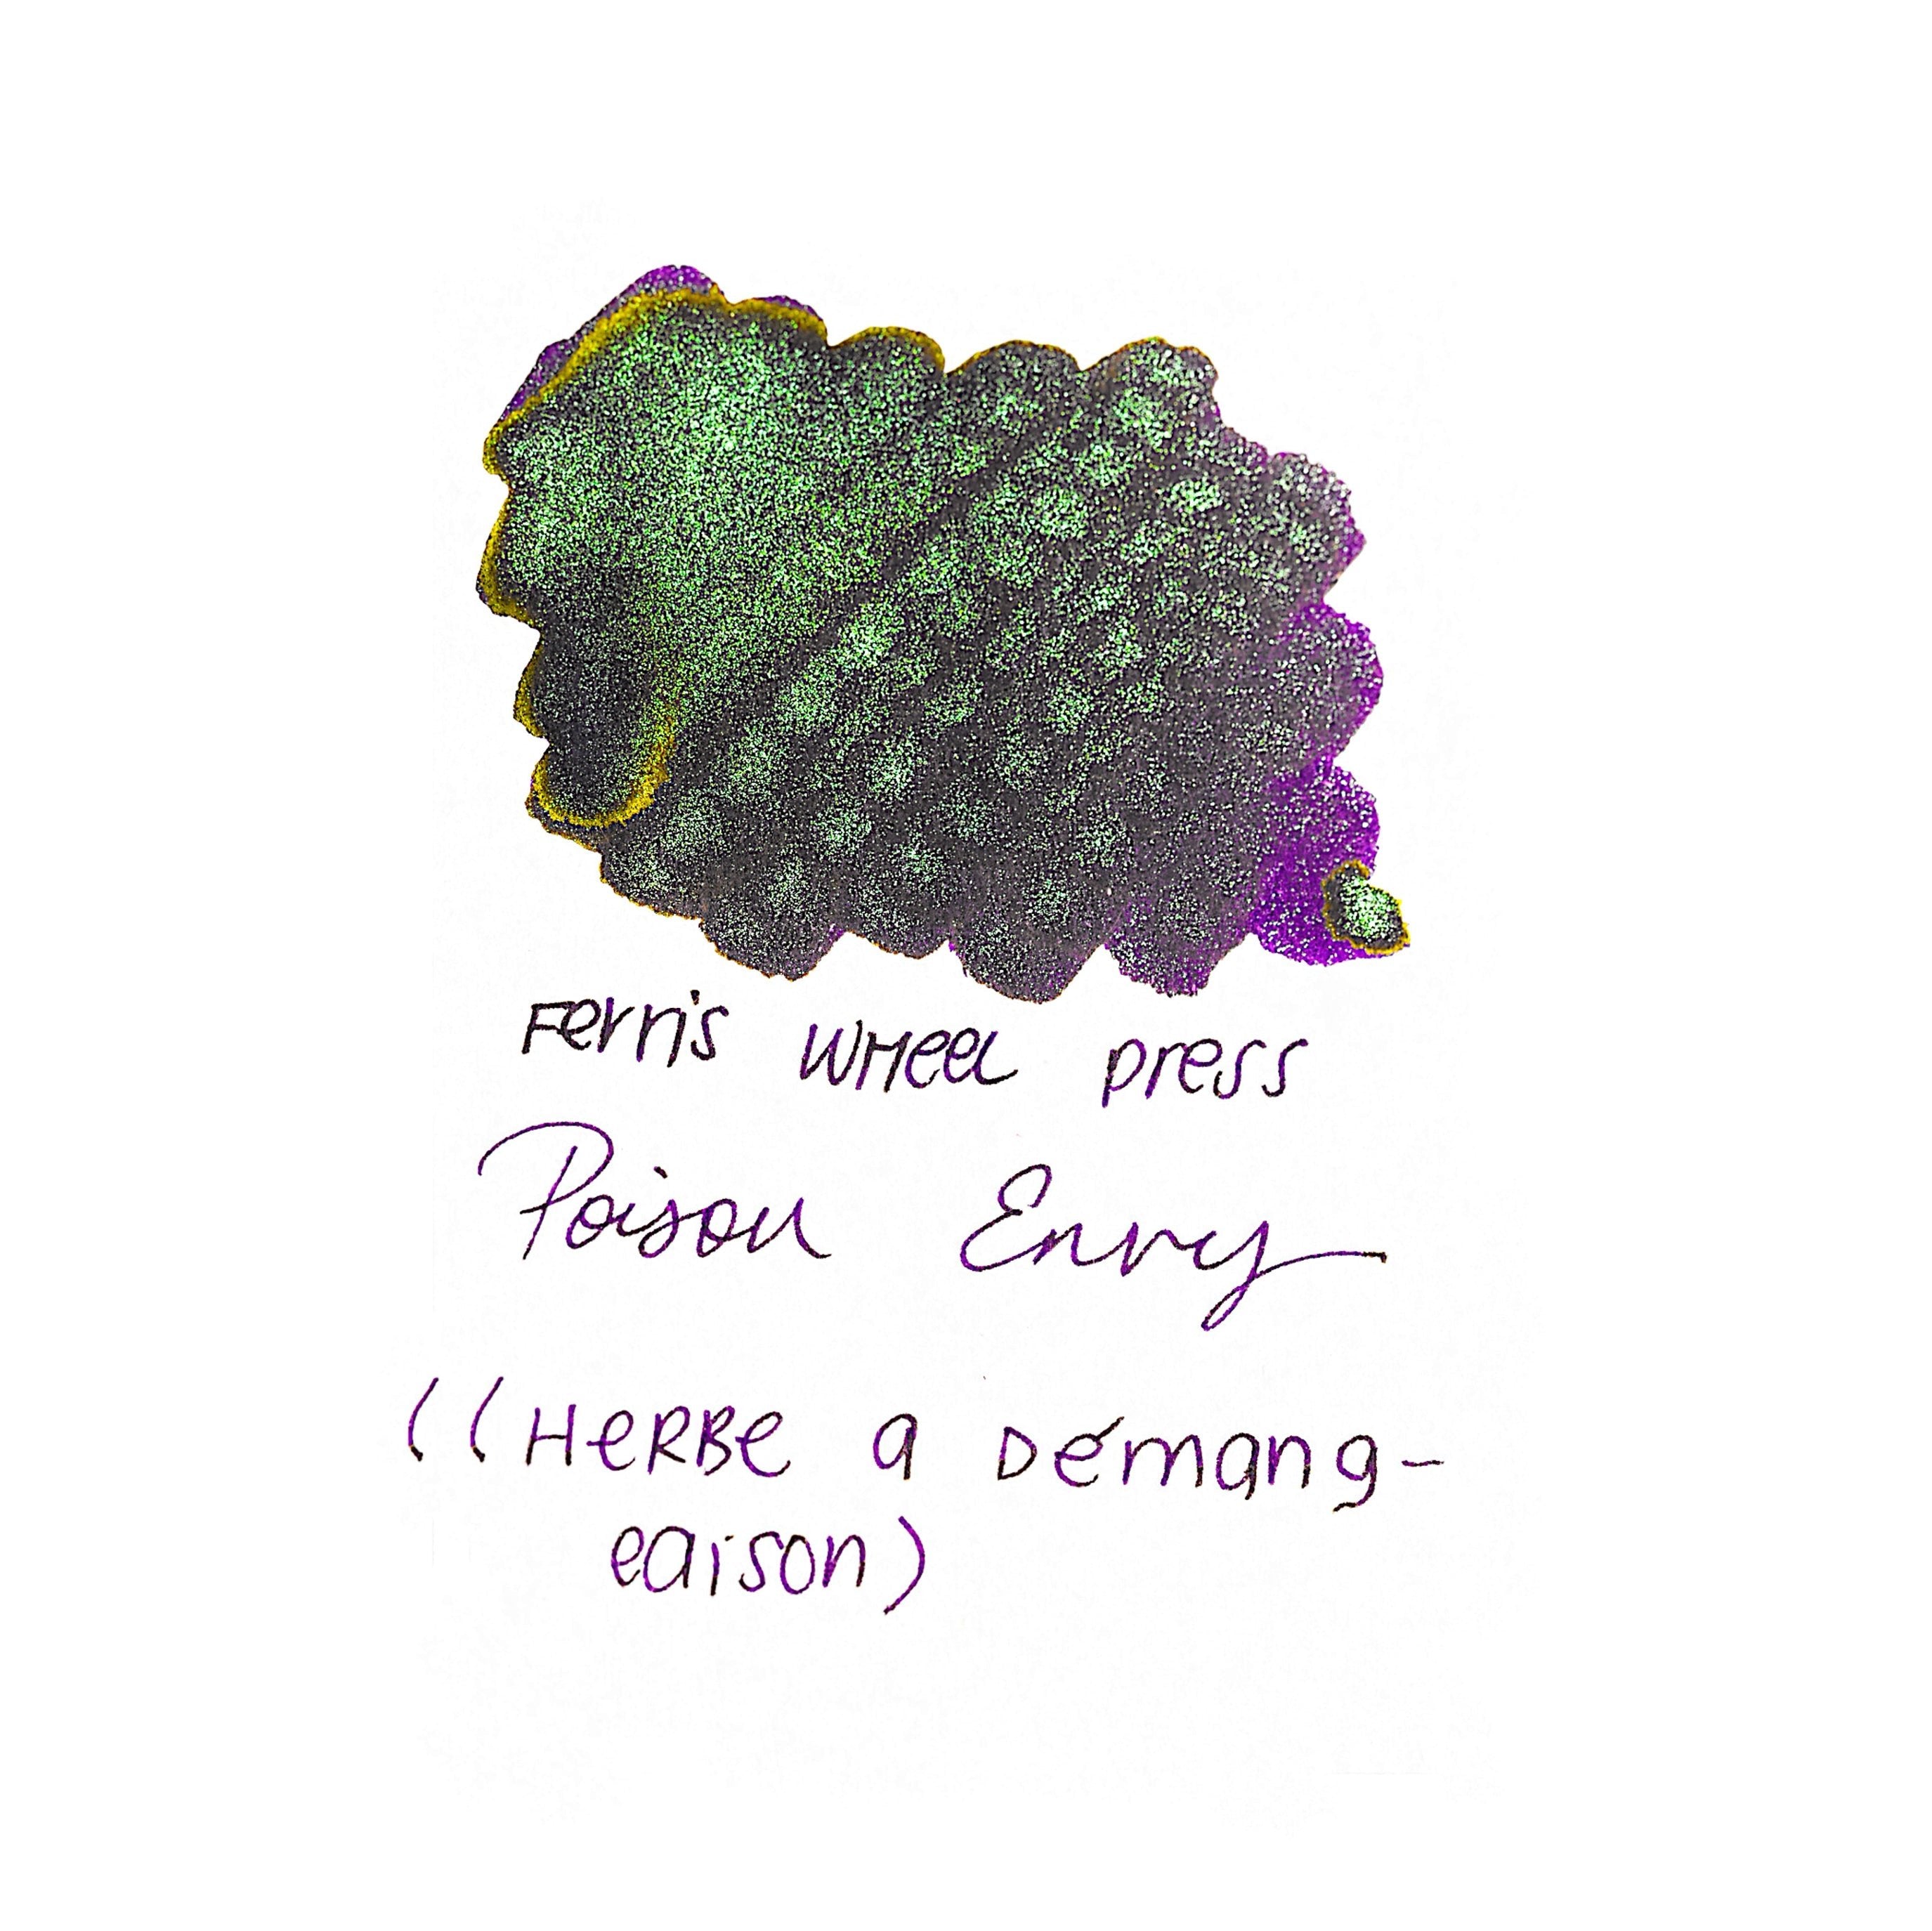 Ferris WHeel press
Poison Envy
((HeRBe a Démang-
eaison)